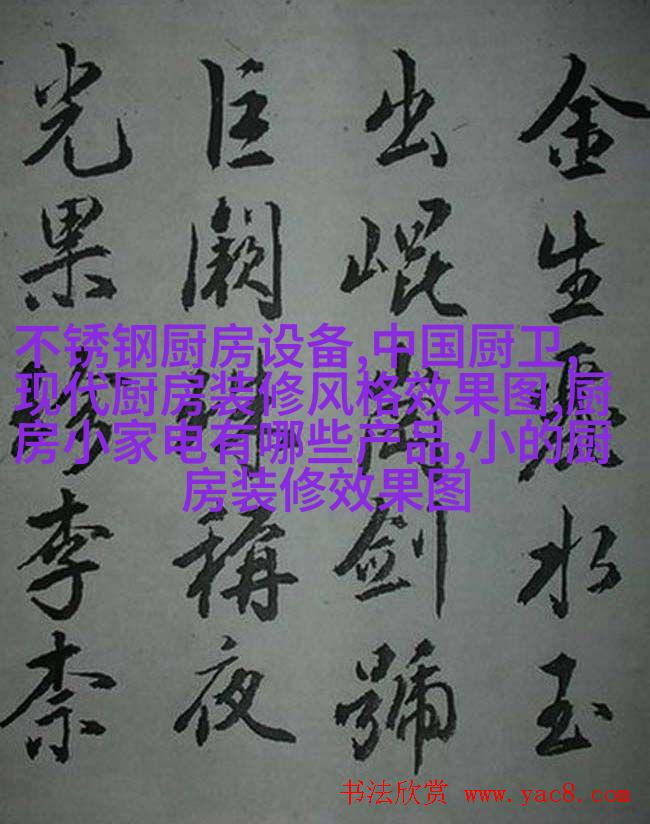 金生麗水玉
出崐岡劍號
巨闕珠稱夜
光果珍李柰
不锈钢厨房设备,中国厨卫,
现代厨房装修风格效果图,厨
房小家电有哪些产品,小的厨
房装修效果图
书法欣赏 www.yac8.com